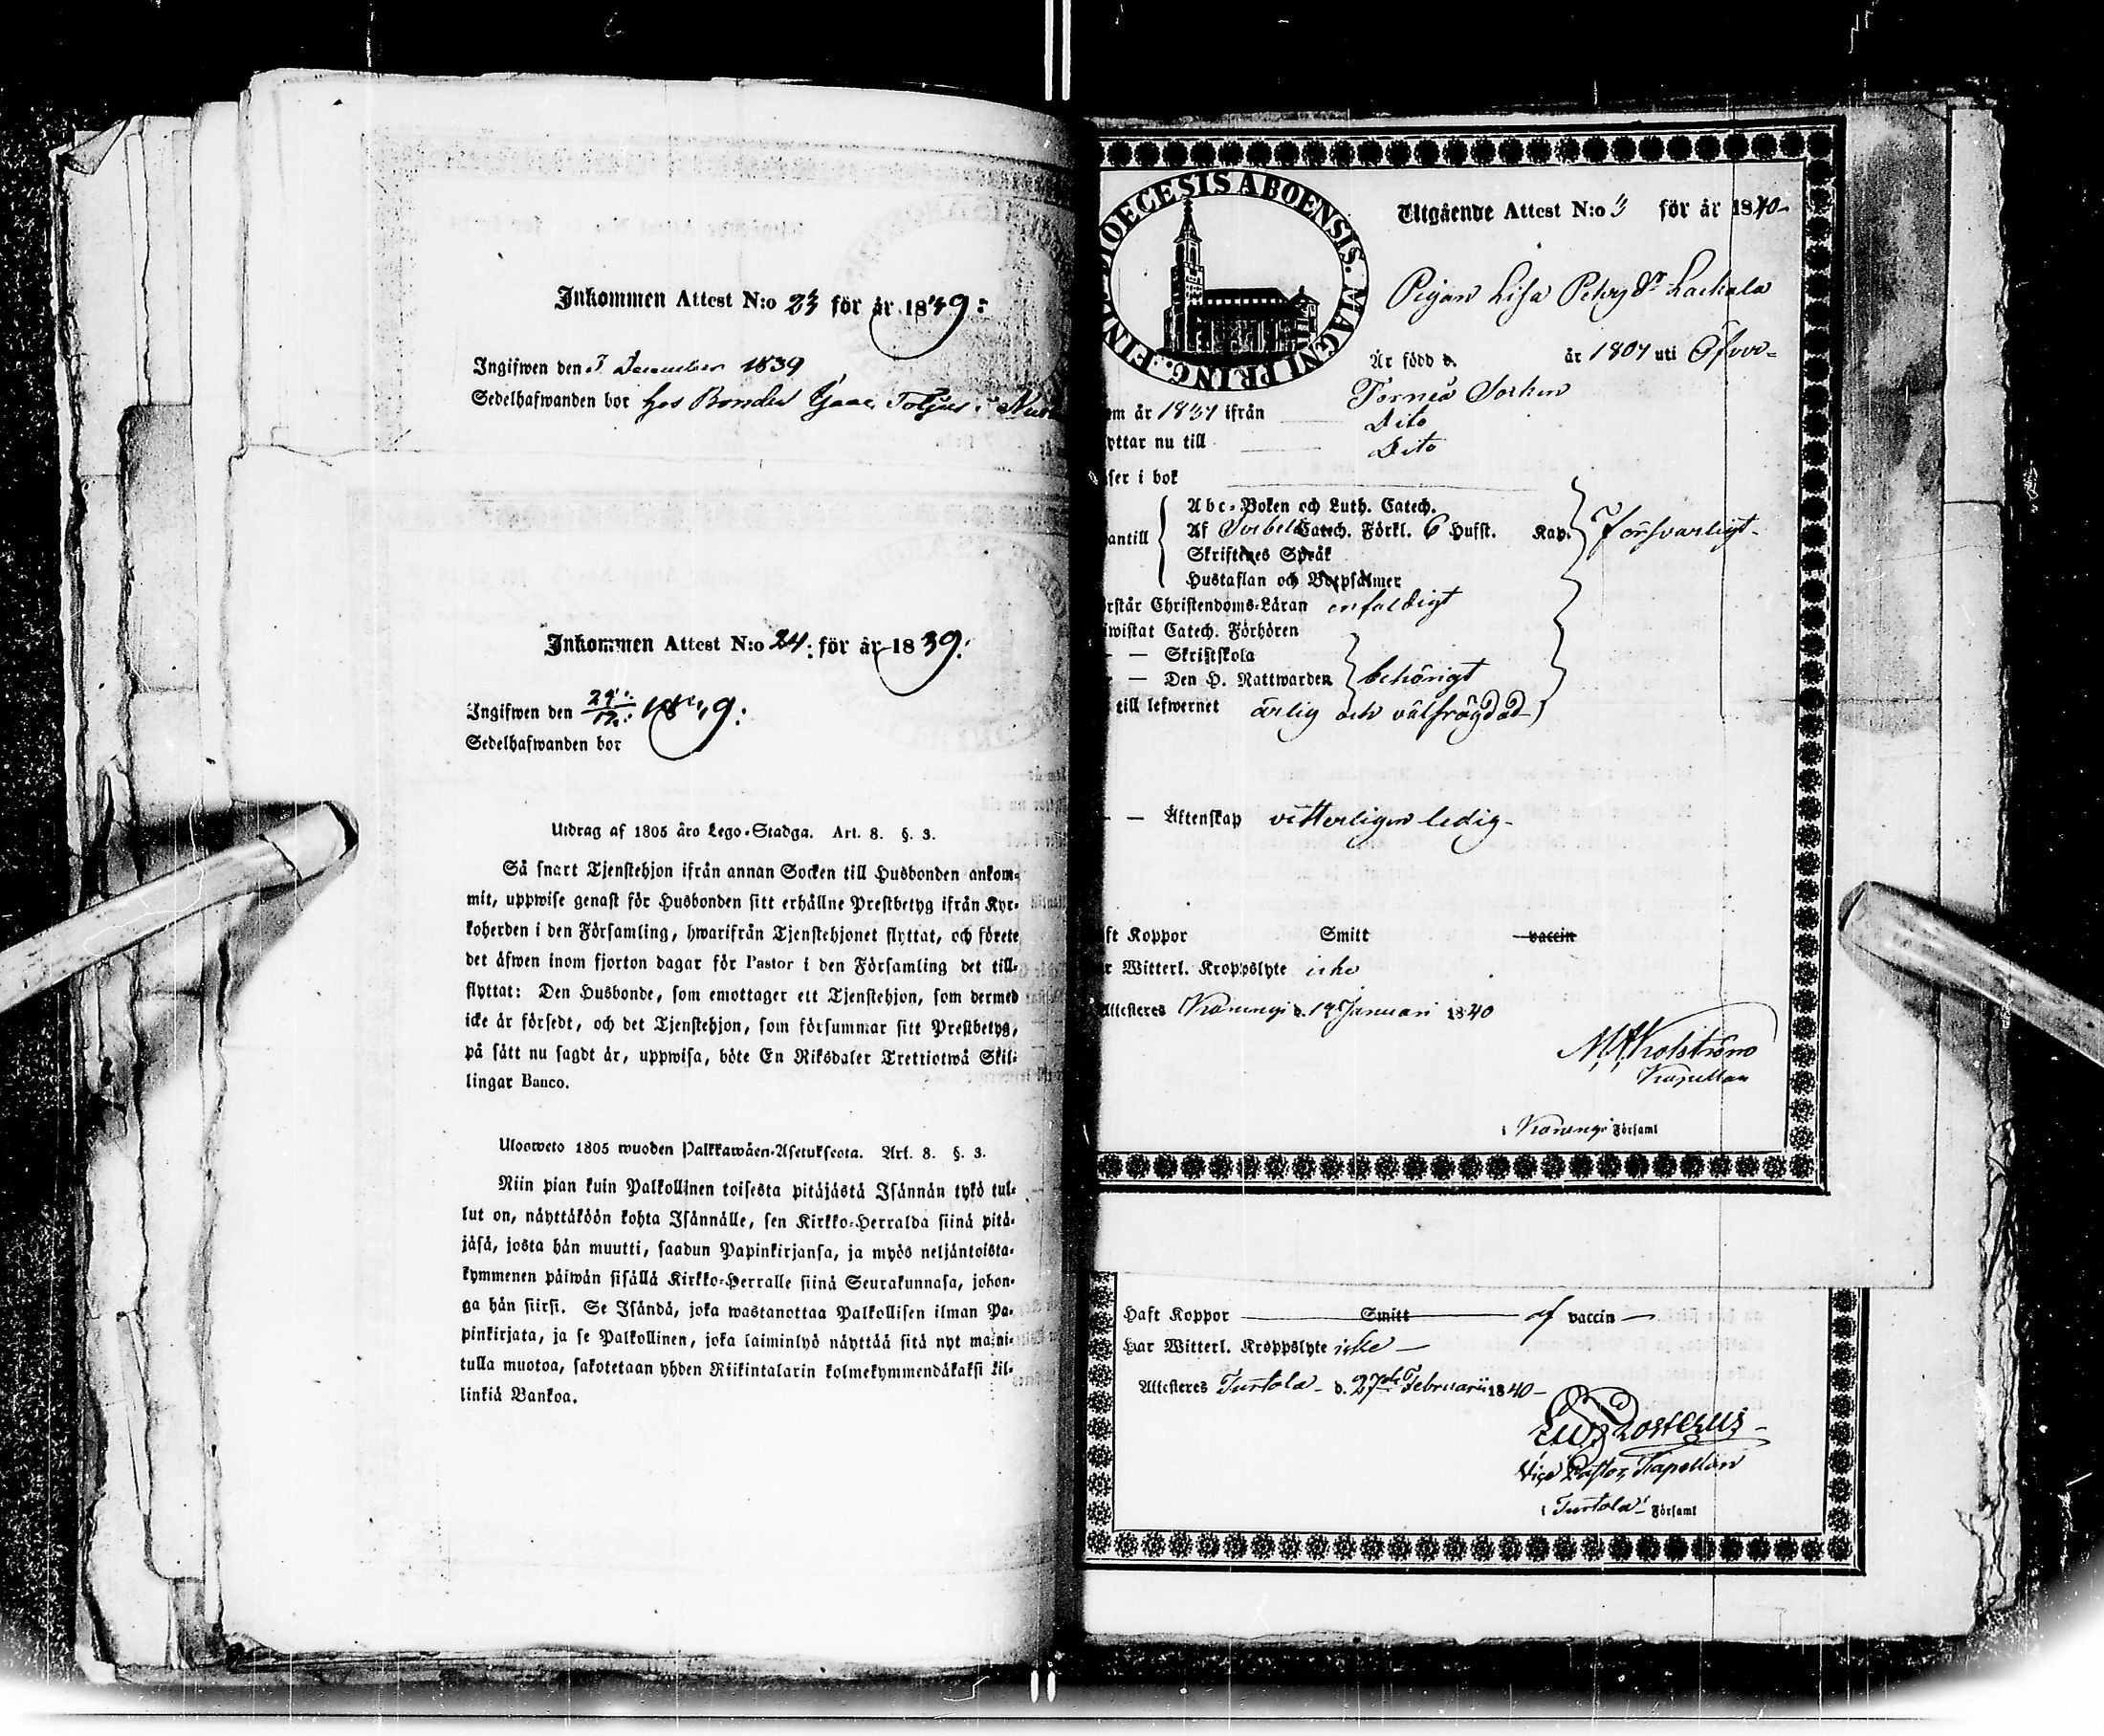 Inkommen Attest N:o 23 för år 1839:
Ingifwen den December 1839
Sedelhafwanden bor hos Bonden
Inkommen Attest N:o 24: för år 1839:
Ingifwen den 29/12: 1839:
Sedelhafwanden bor
Utdrag af 1805 års Lego-Stadga. Art. 8. §. 3.
Så snart Tjenstehjon ifrån annan Socken till Husbonden ankom-
mit, uppwise genast för Husbonden sitt erhållne Prestbetyg ifrån Kyr-
koherden i den Församling, hwarifrån Tjenstehjonet flyttat, och förete
det äfwen inom fjorton dagar för Pastor i den Församling det till-
flyttat: Den Husbonde, som emottager ett Tjenstehjon, som dermed
icke är försedt, och det Tjenstehjon, som försummar sitt Prestbetyg,
på sätt nu sagdt är, uppwisa, böte En Riksdaler Trettiotwå Skil-
lingar Banco.
Ulosweto 1805 wuoden Palkkawäen-Asetuksesta. Art. 8. §. 3.
Niin pian kuin Palkollinen toisesta pitäjästä Isännän tykö tul-
lut on, näyttäköön kohta Isännälle, sen Kirkko-Herralda siinä pitä-
jäsä, josta hän muutti, saadun Papinkirjansa, ja myös neljäntoista-
kymmenen päiwän sisällä Kirkko-Herralle siinä Seurakunnasa, johon-
ga hän siirsi. Se Isändä, joka wastanottaa Palkollisen ilman Pa-
pinkirjata, ja se Palkollinen, joka laiminlyö näyttää sitä nyt maini-
tulla muotoa, sakotetaan yhden Riikintalarin kolmekymmendäkaksi kil-
linkiä Bankoa.
DIOECESIS ABOENSIS. MAGNI PRINC. FINL.
Utgående Attest N:o 3 för år 1840-
Pigan Lisa Lackala
Är född d. år 1807 uti Öfver=
Torneå Socken
om år 1831 ifrån Dito
yttar nu till Dito
ser i bok
Abc-Boken och Luth. Catech.
antill Af Svebel. Catech. Förkl. 6 Hufst. Kap. försvarligt-
Skriftenes Språk
Hustaflan och Botpsalmer
rstår Christendoms-Läran enfaldigt
wistat Catech. Förhören
— Skriftskola
— Den H. Nattwarden behörigt
till lefwernet ärlig och välfrägdad-
— Äktenskap vitterligen ledig-
ft Koppor Smitt vaccin
r Witterl. Kroppslyte icke
Attesteres Karungi d. 19 Januari 1840
Kolström
Kapellan
i Karungi Församl
Haft Koppor — Smitt — af vaccin —
Har Witterl. Kroppslyte icke —
Attesteres Turtola - d. 27de Februarii 1840 -
Vice Pastor, Kapellan
i Turtola - Församl